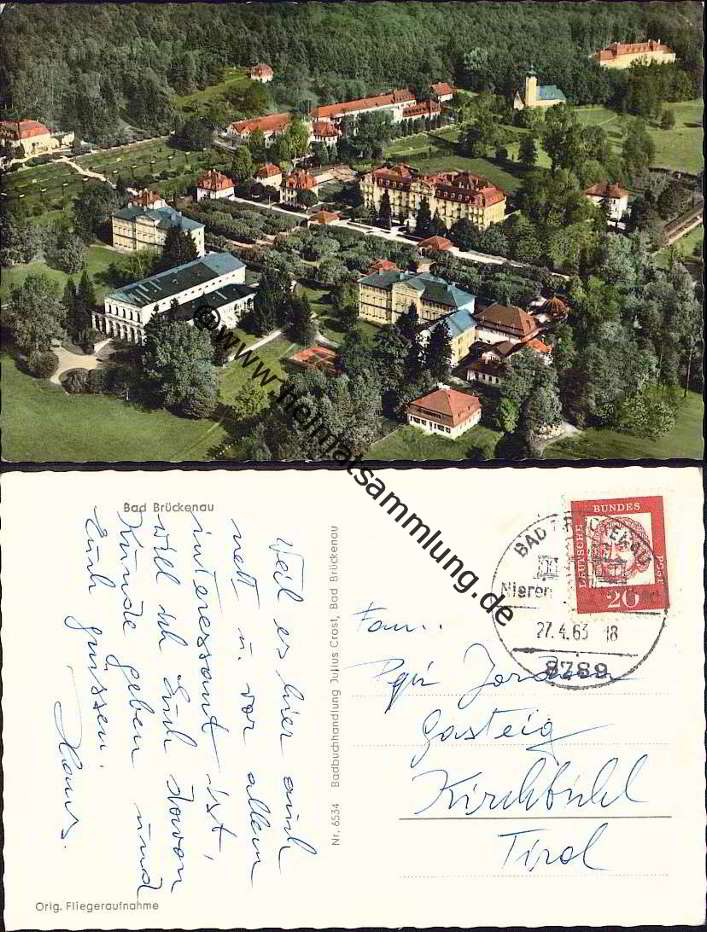 @www.heimatsammlung.de
Bad Brückenau
Weil es hier auch
nett u. vor allem
interessant ist,
will ich Euch davon
Kunde geben und
Euch grüssen.
Hans.
Orig. Fliegeraufnahme
Nr. 6534 Badbuchhandlung Julius Crost, Bad Brückenau
DEUTSCHE
BUNDES
POST
20
BAD BRÜCKENAU
Nieren
27.4.63 18
8789
Fam.
Gasteig
Kirchbichl
Tirol